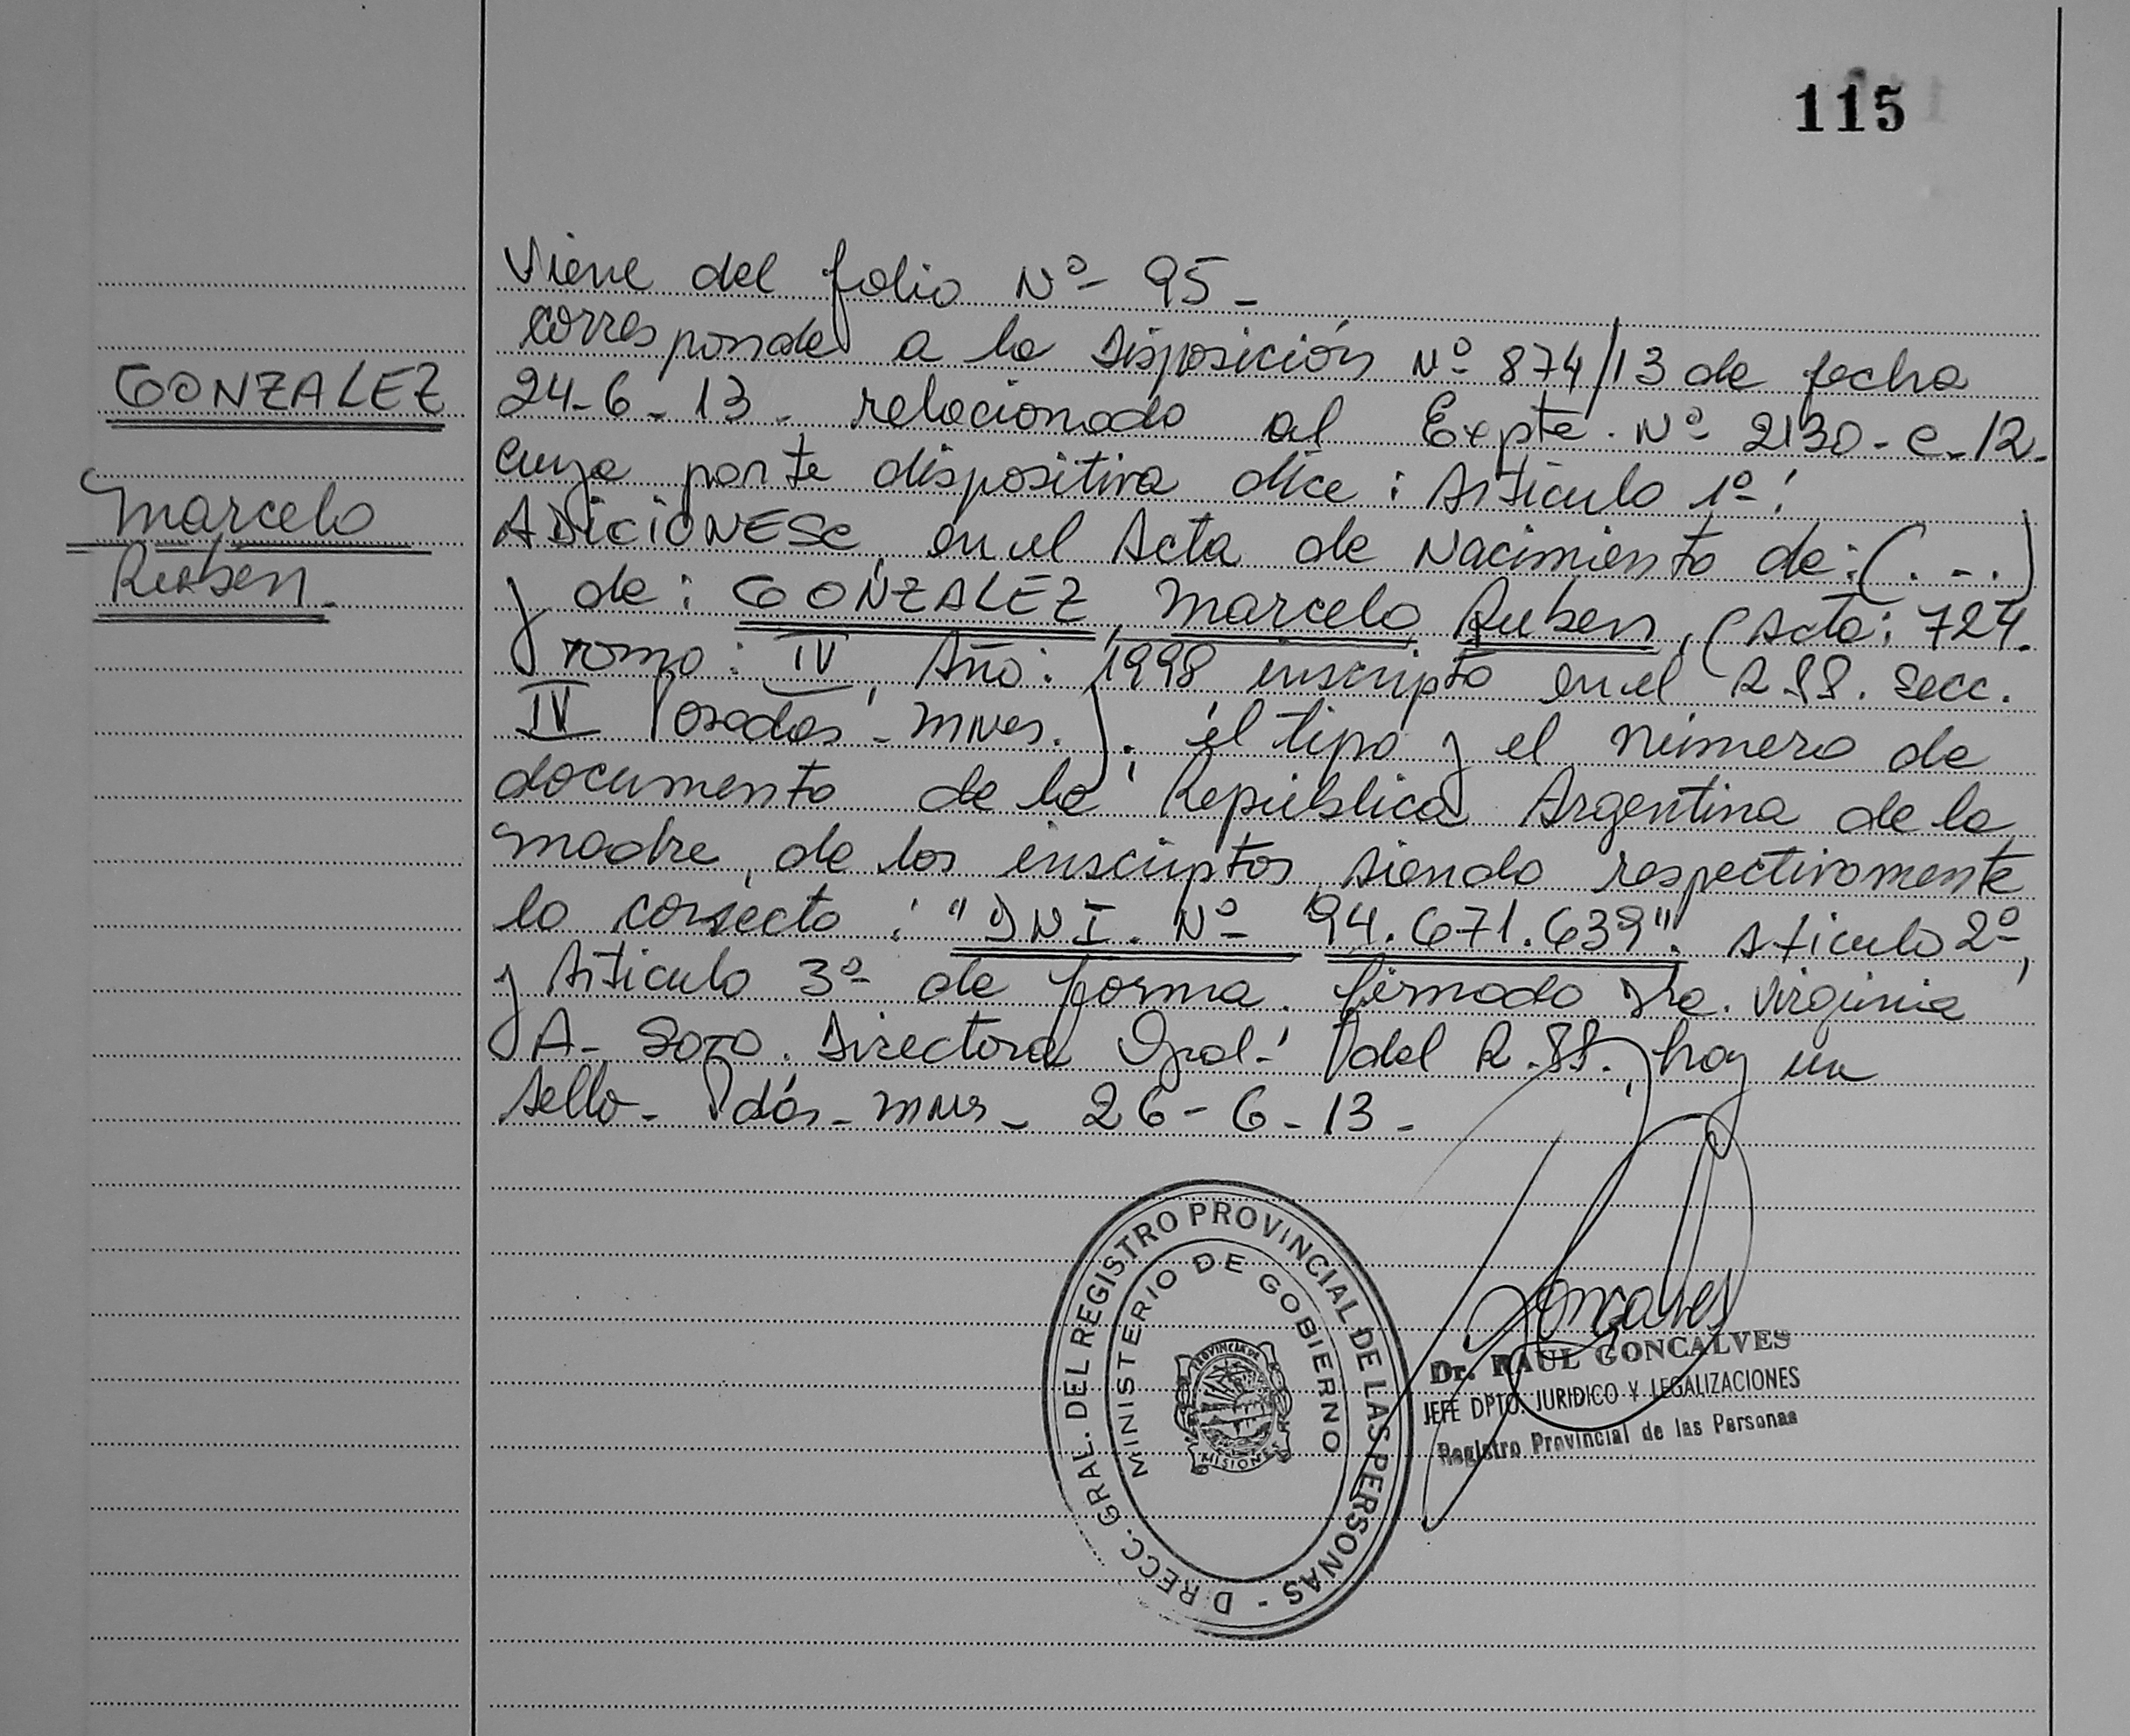 115
Viene del folio Nº 95-
corresponde a la Disposición Nº 874/13 de fecha
GONZALEZ
24-6-13- relacionado al Expte. Nº 2130-C-12-
cuya parte dispositiva dice: Artículo 1º:
Marcelo
ADICIONESE, en el Acta de Nacimiento de: (...)
Ruben-
y de: GONZALEZ, Marcelo Ruben, (Acta: 724.
Tomo: IV, Año: 1998 inscripto en el R.PP. Secc.
IV Posadas-Mnes.). el tipo y el número de
documento de la República Argentina de la
madre, de los inscriptos, siendo respectivamente
lo correcto: "DNI. Nº 94.671.639". Aticulo 2º,
y Artículo 3º de forma. firmado Dra. Virginia
A- Soto. Directora Gral- del R.PP., hay un
sello- Pdás-Mnes- 26-6-13-
DIRECC. GRAL. DEL REGISTRO PROVINCIAL DE LAS PERSONAS -
MINISTERIO DE GOBIERNO
PROVINCIA DE
MISIONES
Goncalves
Dr. RAUL GONCALVES
JEFE DPTO. JURIDICO Y LEGALIZACIONES
Registro Provincial de las Personas